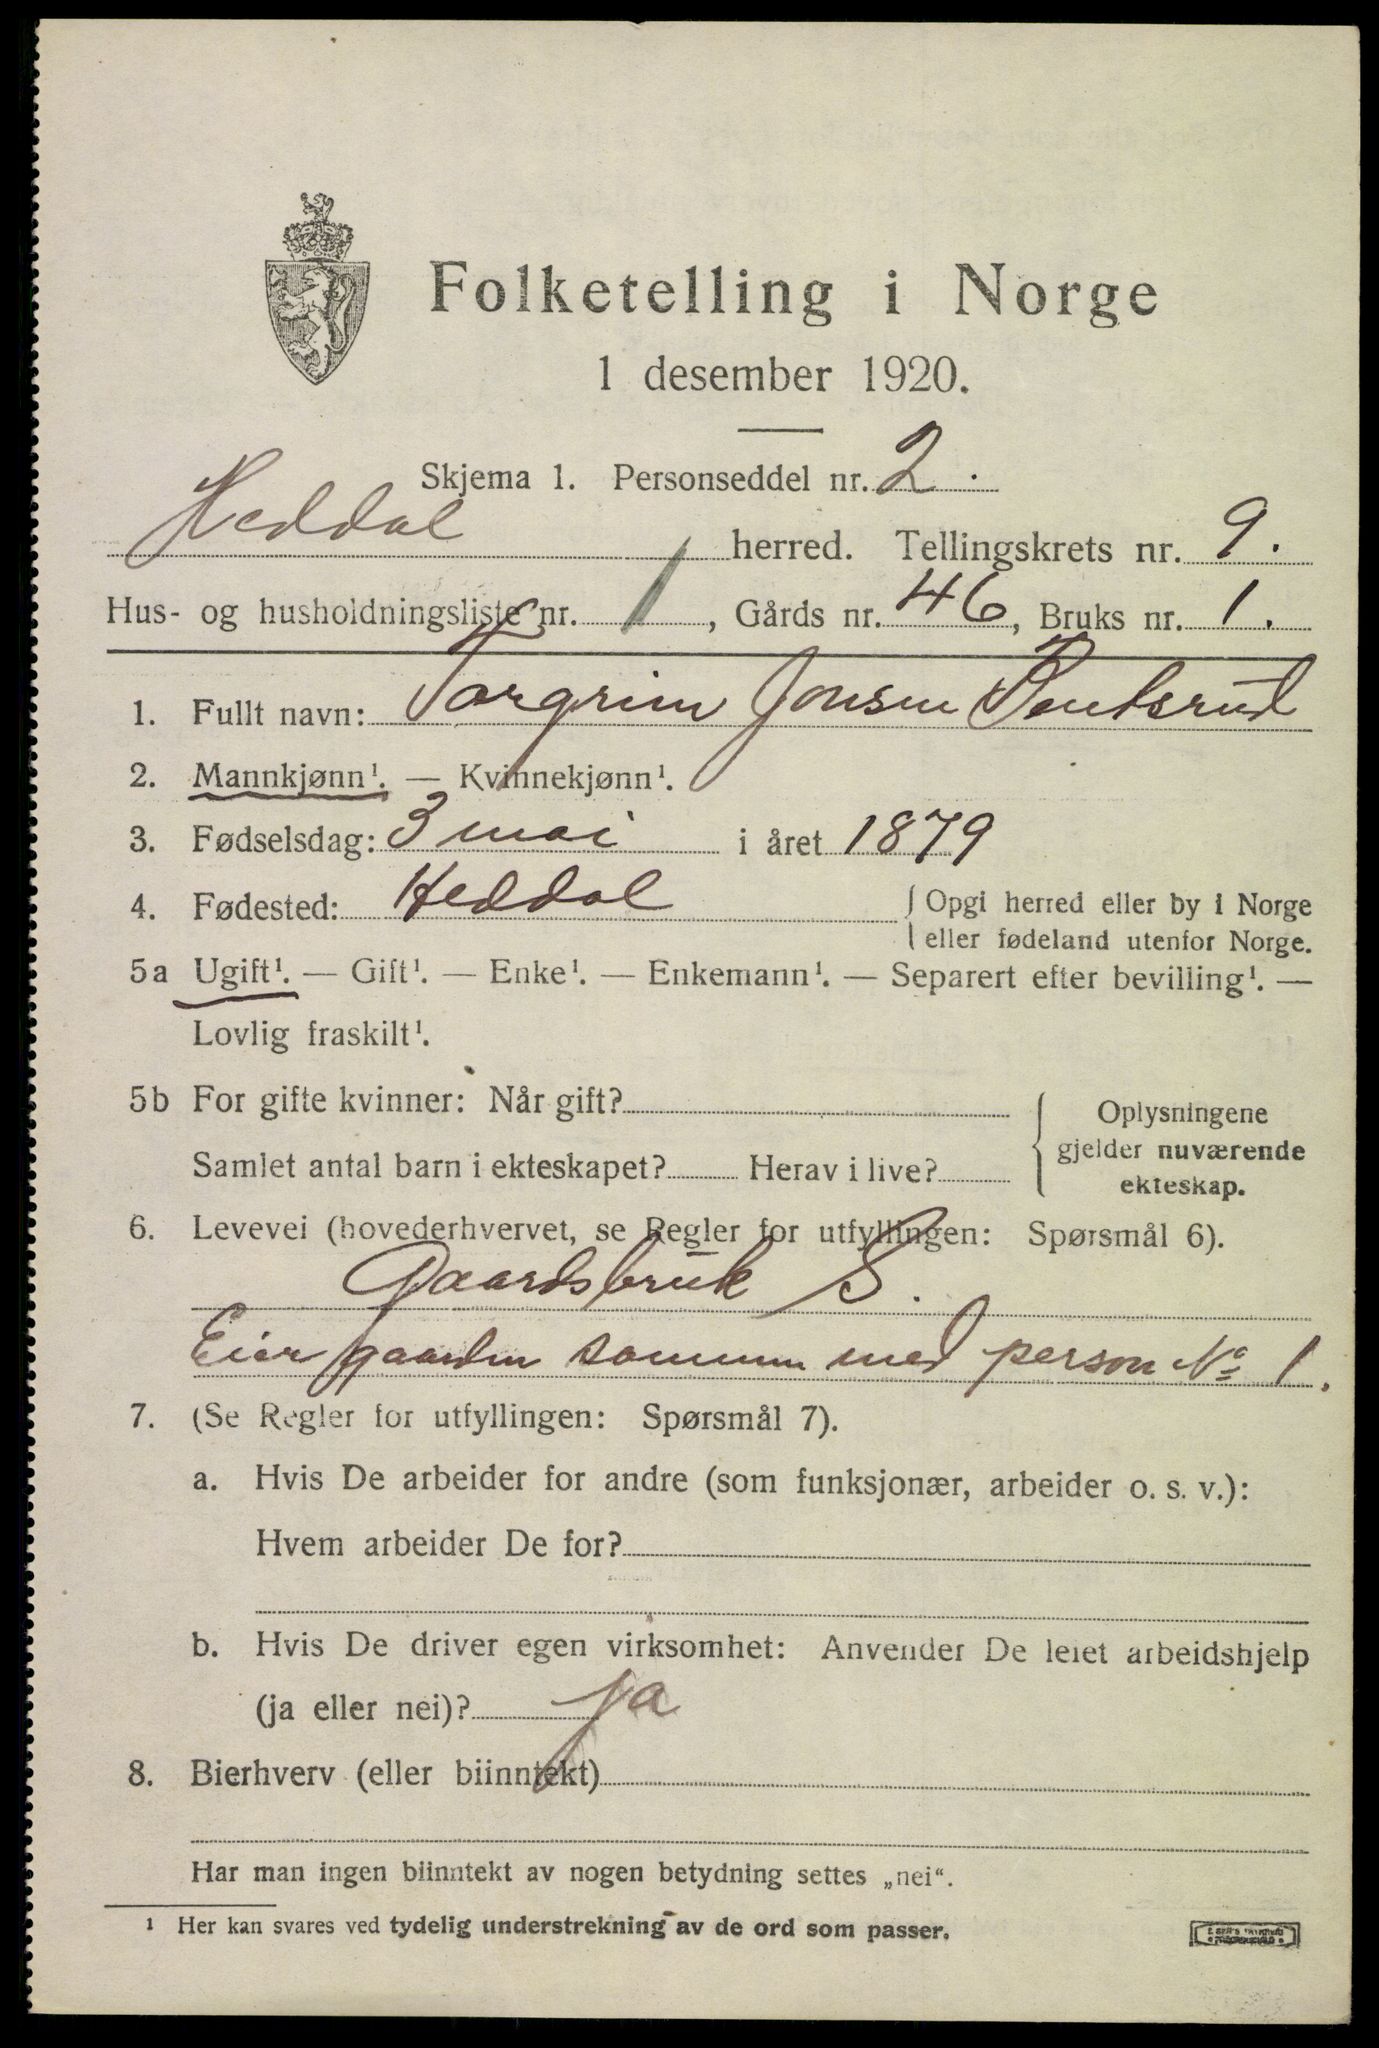 Folketelling i Norge
1 desember 1920.
Skjema 1. Personseddel nr. 2.
Heddal herred. Tellingskrets nr. 9.
Hus- og husholdningsliste nr. 1, Gårds nr. 46, Bruks nr. 1.
1. Fullt navn: Torgrim Jonsen
2. Mannkjønn¹. — Kvinnekjønn¹.
3. Fødselsdag: 3 mai i året 1879
4. Fødested: Heddal { Opgi herred eller by i Norge
eller fødeland utenfor Norge.
5a Ugift¹. — Gift¹. — Enke¹. — Enkemann¹. — Separert efter bevilling¹. —
Lovlig fraskilt¹.
5b For gifte kvinner: Når gift?
Samlet antal barn i ekteskapet? Herav i live?
Oplysningene
gjelder nuværende
ekteskap.
6. Levevei (hovederhvervet, se Regler for utfyllingen: Spørsmål 6).
Gaardsbruk S.
Eier gaarden sammen med person No 1.
7. (Se Regler for utfyllingen: Spørsmål 7).
a. Hvis De arbeider for andre (som funksjonær, arbeider o. s. v.):
Hvem arbeider De for?
b. Hvis De driver egen virksomhet: Anvender De leiet arbeidshjelp
(ja eller nei)? ja
8. Bierhverv (eller biinntekt)
Har man ingen biinntekt av nogen betydning settes „nei“.
¹ Her kan svares ved tydelig understrekning av de ord som passer.